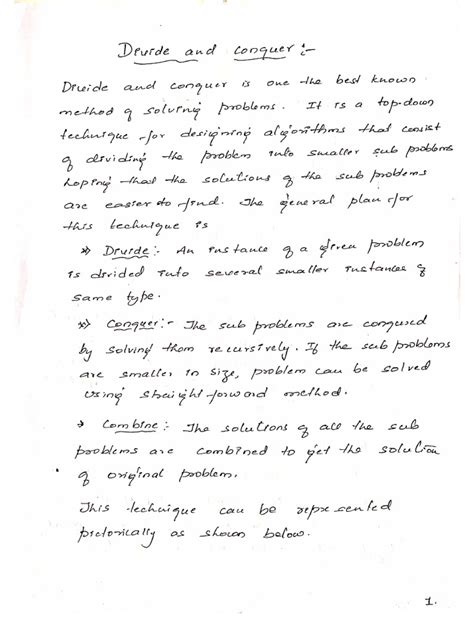 Divide and conquer :-
Divide and conquer is one the best known
method of solving problems. It is a top-down
technique for designing algorithms that consist
of dividing the problem into smaller sub problems
hoping that the solutions of the sub problems
are easier to find. The general plan for
this technique is
*) Divide :- An instance of a given problem
is divided into several smaller instances of
same type.
*) Conquer :- The sub problems are conqured
by solving them recursively. If the sub problems
are smaller in size, problem can be solved
using straight forward method.
*) Combine :- The solutions of all the sub
problems are combined to get the solution
of original problem.
This technique can be represented
pictorically as shown below.
1.